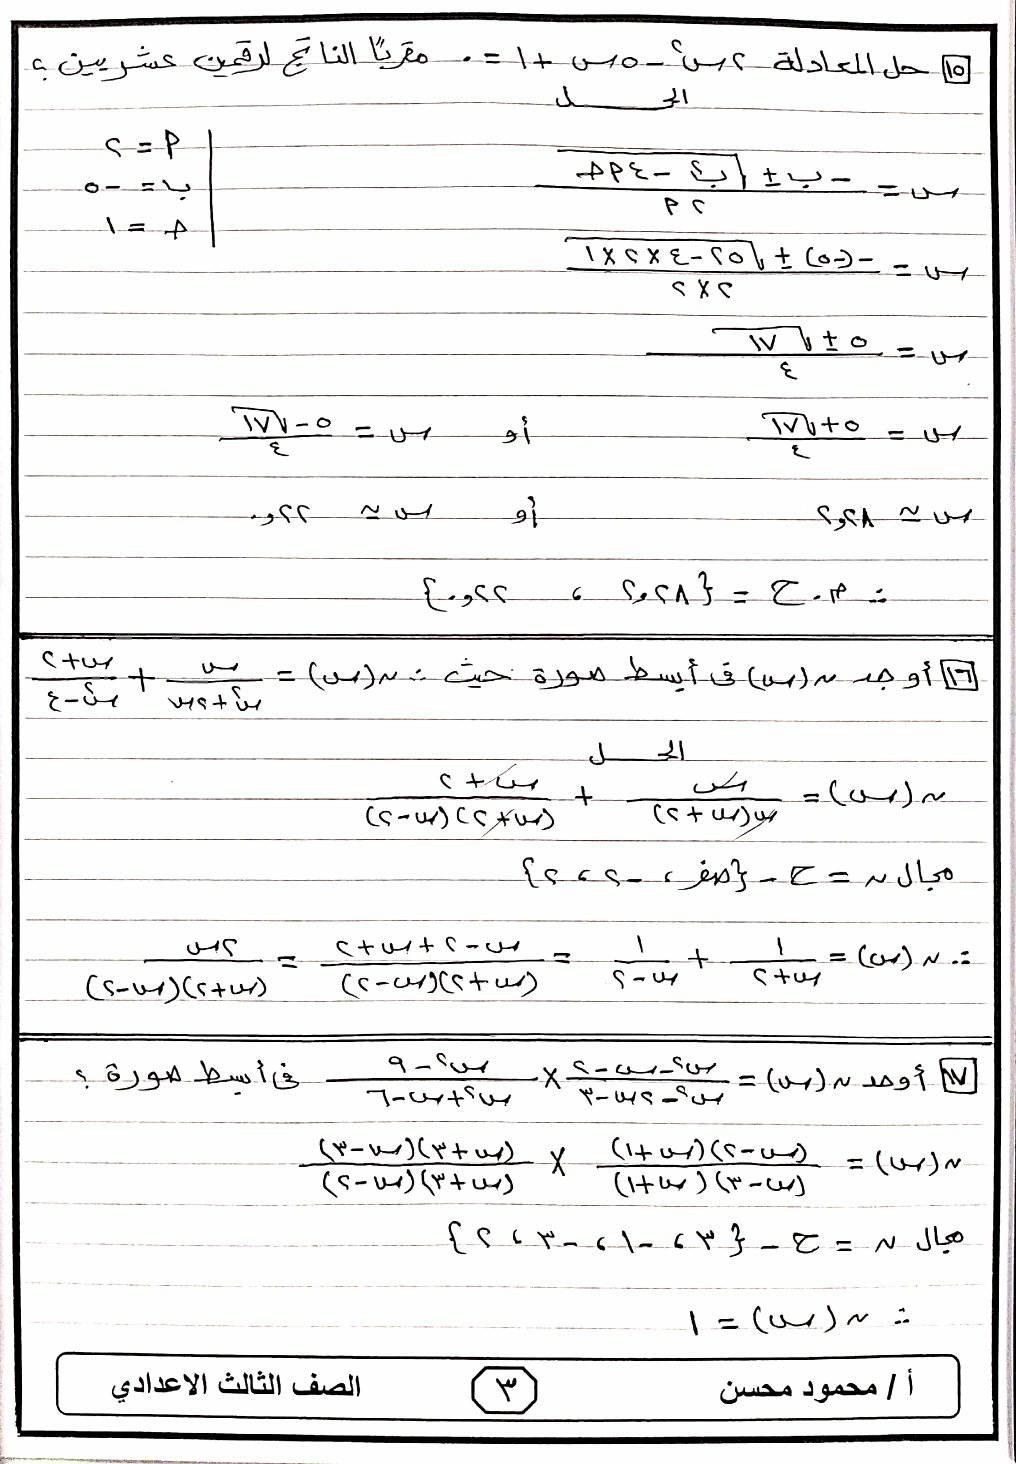 ١٥ حل المعادلة ٢س٢ - ٥س + ١ = ٠ مقربًا الناتج لرقمين عشريين ؟
الحـــــل
س = (-ب ± √(ب٢ - ٤أجـ)) / ٢أ
أ = ٢
ب = -٥
جـ = ١
س = (-(-٥) ± √(٢٥ - ٤×٢×١)) / ٢×٢
س = (٥ ± √١٧) / ٤
س = (٥ + √١٧) / ٤ أو س = (٥ - √١٧) / ٤
س ≃ ٢,٢٨ أو س ≃ ٠,٢٢
∴ م.ح = {٢,٢٨ ، ٠,٢٢}
١٦ أوجد ن(س) فى أبسط صورة حيث : ن(س) = س / (س٢ + ٢س) + (س + ٢) / (س٢ - ٤)
الحـــــل
ن(س) = س / س(س + ٢) + (س + ٢) / (س + ٢)(س - ٢)
مجال ن = ح - {صفر ، -٢ ، ٢}
∴ ن(س) = ١ / (س + ٢) + ١ / (س - ٢) = (س - ٢ + س + ٢) / (س + ٢)(س - ٢) = ٢س / (س + ٢)(س - ٢)
١٧ أوجد ن(س) = (س٢ - س - ٢) / (س٢ - ٢س - ٣) × (س٢ - ٩) / (س٢ + س - ٦) فى أبسط صورة ؟
ن(س) = (س - ٢)(س + ١) / (س - ٣)(س + ١) × (س + ٣)(س - ٣) / (س + ٣)(س - ٢)
مجال ن = ح - {٣ ، -١ ، -٣ ، ٢}
∴ ن(س) = ١
أ / محمود محسن
٣
الصف الثالث الاعدادي